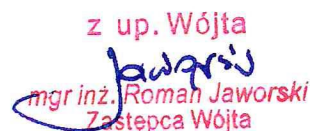 z up. Wójta
mgr inż. Roman Jaworski
Zastępca Wójta